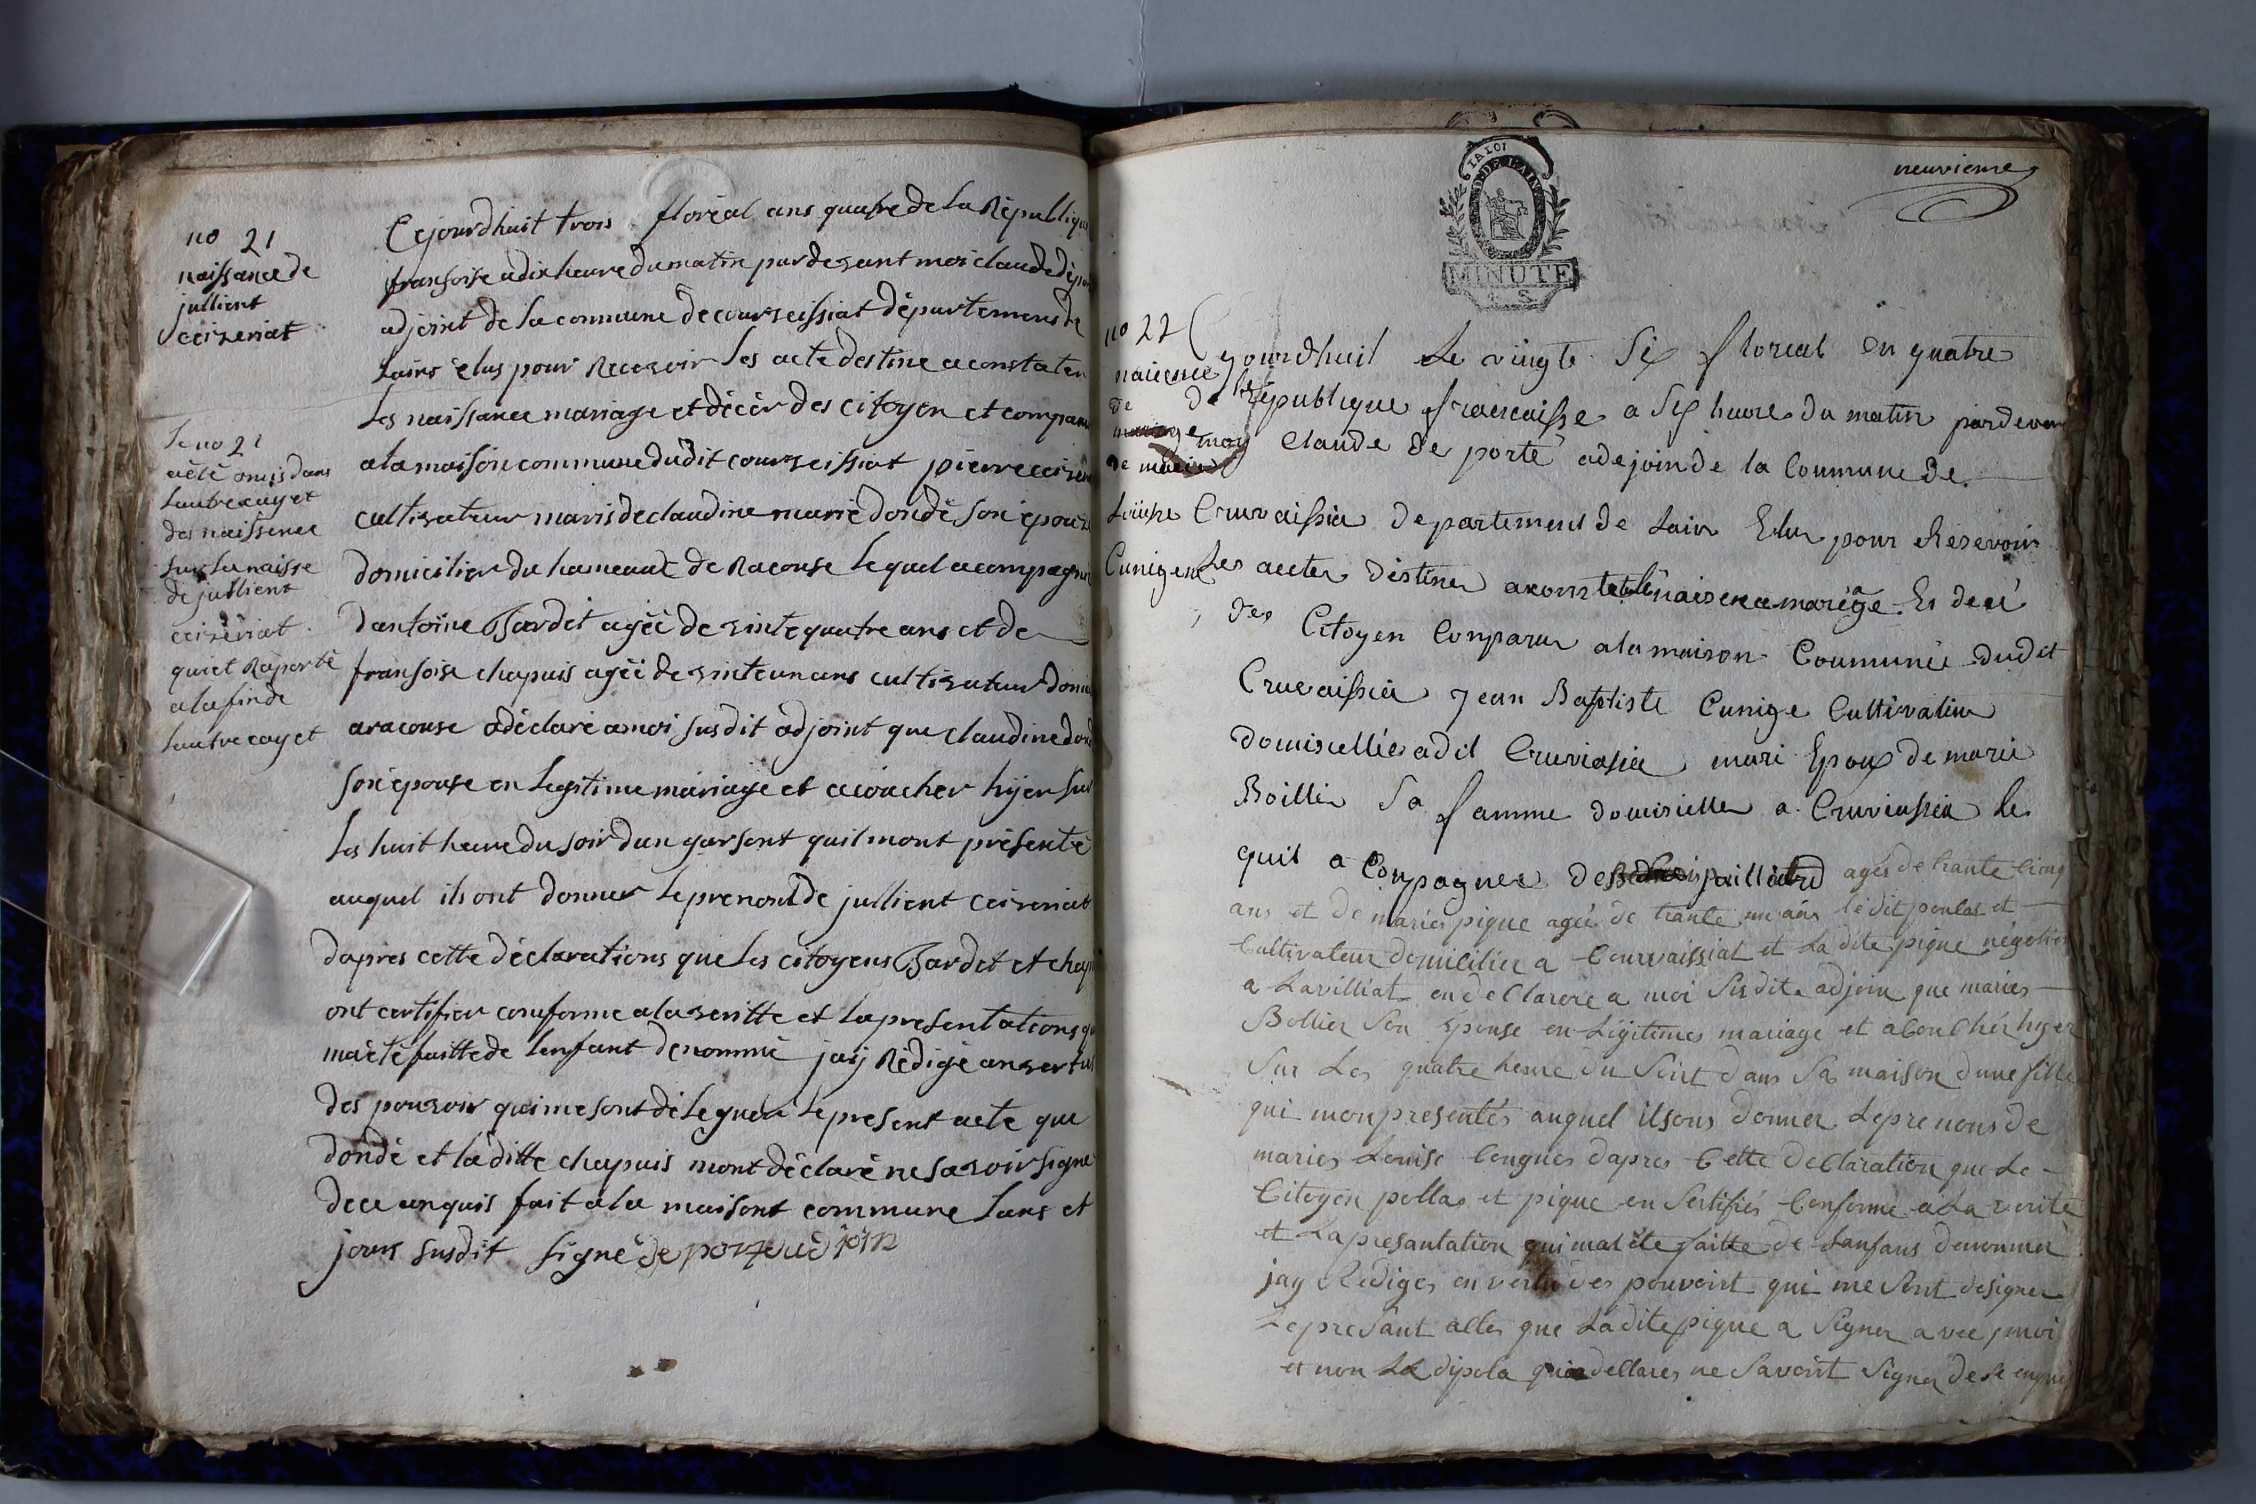 no 21
naissance de
jullient
ceizeriat
Le no 21
aèté omis dans
lautre cayet
des naissence
sur la naisse
de jullient
ceizèriat
quiet Raportè
a la fin de
lautre cayet
Cejourdhuit trois floréal ans quatre de la Rèpublique
fransoise a dix heure du matin par devant moi claude dèpor
adjoint de la commune de courveissiat dèpartement de
lains èlus pour Recevoir les acte destine a constater
les naissance mariage et dècèr des citoyen et comparu
a la maison commune dudit courveissiat pierre ceizeri
cultivateur maris de claudine marie dondè son èpouze
domicilier du hameaut de Racouse lequel acompagnié
dantoine Bardet ageè de vinte quatre ans et de
fransoise chapuis ageè de vinte un ans cultivateur domici
a racouse a dèclarè a moi susdit adjoint que claudine dond
son èpouse en legitime mariage et acoucher hyer sur
les huit heure du soir dun garsont quil mont prèsentè
auquel ils ont donner le prenont de jullient ceizeriat
dapres cette dèclarations que les citoyens Bardet et chapu
ont certifier conforme a la veritte et la presentations qu
maètè faitte de lenfant denommè jaij Rèdigè an vertus
des pouvoir qui me sont dèleguer le present acte que
dondè et la ditte chapuis mont dèclarè ne savoir signe
de ce anquis fait a la maisont commune lans et
jours susdit signè de porte ad join
LA LOI
MINUTE
neuvieme
no 22
naicence
de
mariage
de marie
Louise
Cunige
Cejourdhuil Le vingte Six floreal en quatre
de la Republique francaisse a Six huore du matin pardevan
moy Claude de porté adejoin de la Commune de
Cruvaissia departement de Lain Elu pour Reservoir
Les actes destiner a constate naisence mariage Es decé
des Citoyen Conparu a la maison Coumunie dudit
Cruvaissia Jean Baptiste Cunige Cultivatiur
domiscelliés adit Cruviasia mari Epoux de marie
Boillie Sa famme domisielle a Cruviassia le
quil a Conpagner de paillard agés de trante Cinq
ans et de maries pique ageé de trante un ans ledit poulat et
Cultivateur domicilier a Courvaissiat et La dite pique négotien
a Lavilliat en declarere a moi Susdit adjoin que maries
Bollier Son Epouse en Légitimes mariage et a Couchér hyer
Sur Les quatre heure du Soirt dans Sa maison dune fille
qui mon presentés auquel ilsons donner Leprenons de
maries Louise Congnes dapres Cette declaration que Le
Citoyen pollas et pique en Sertifiés Conforme a La verité
et La presantation qui mat été faitte de Lanfans denonmer
jay Rediges en vertu des pouvoirt qui me Sont designer
Le presant actes que Ladite pique a Signer avec moi
et non Le dipola qui a dellares ne Savoirt Signer de se enquis